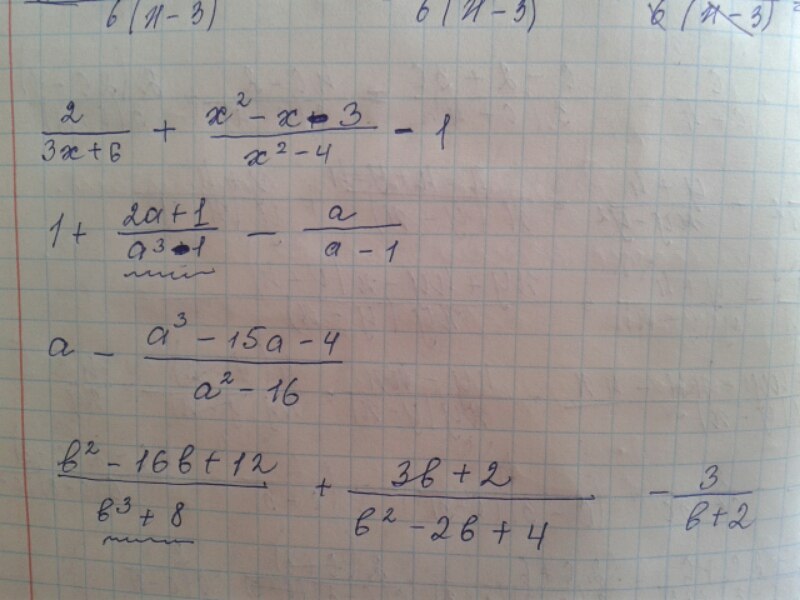 6(x-3) 6(x-3) 6(x-3)
2/(3x+6) + (x²-x-3)/(x²-4) - 1
1 + (2a+1)/(a³-1) - a/(a-1)
a - (a³-15a-4)/(a²-16)
(b²-16b+12)/(b³+8) + (3b+2)/(b²-2b+4) - 3/(b+2)